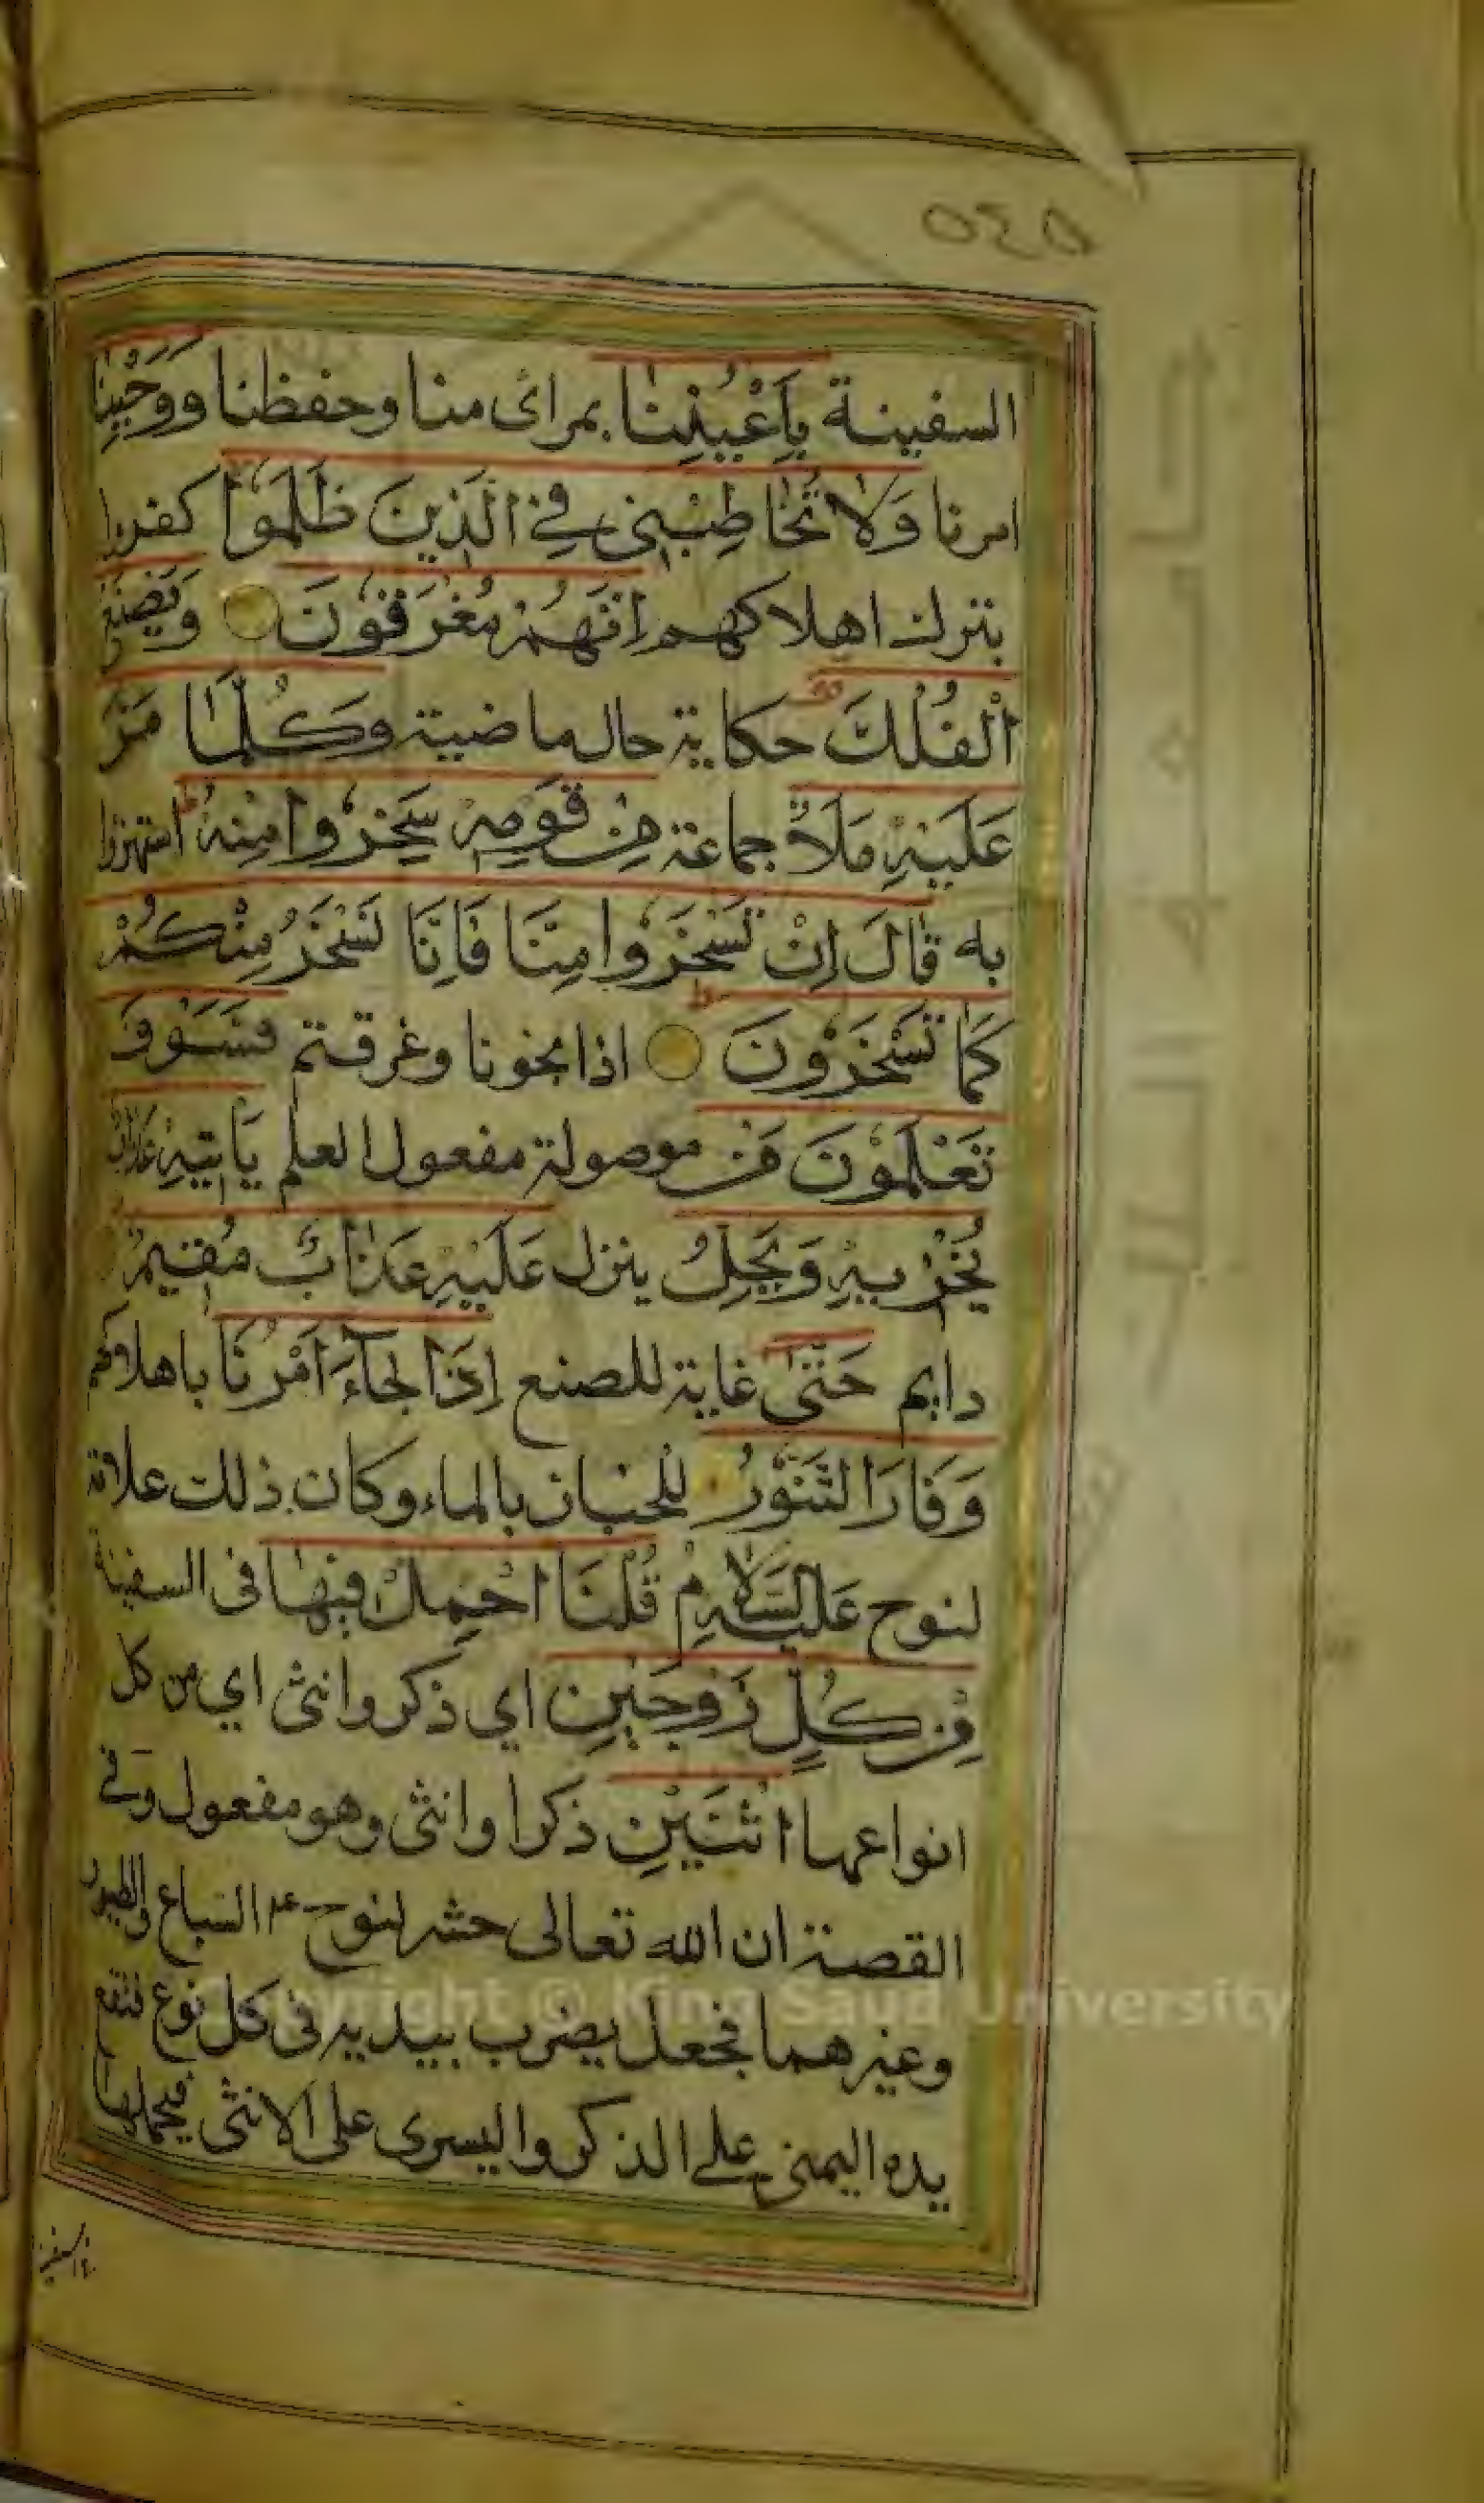 ٥٤٥
السفينة بِاَعْيُنِنَا بمرائ منا وحفظنا وَوَحْيِنَا
امرنا وَلَا تُخَاطِبْنِي فِي الَّذِينَ ظَلَمُوا كفروا
بترك اهلاكهم اِنَّهُمْ مُغْرَقُونَ وَيَصْنَعُ
الْفُلْكَ حكاية حال ماضية وَكُلَّمَا مَرَّ
عَلَيْهِ مَلَأٌ جماعة مِنْ قَوْمِهِ سَخِرُوا مِنْهُ استهزؤا
به قَالَ اِنْ تَسْخَرُوا مِنَّا فَاِنَّا نَسْخَرُ مِنْكُمْ
كَمَا تَسْخَرُونَ اذا نجونا وغرقتم فَسَوْفَ
تَعْلَمُونَ مَنْ موصولة مفعول العلم يَاْتِيهِ عَذَابٌ
يُخْزِيهِ وَيَحِلُّ ينزل عَلَيْهِ عَذَابٌ مُقِيمٌ
دايم حَتّٰى غاية للصنع اِذَا جَاءَ اَمْرُنَا باهلاكهم
وَفَارَ التَّنُّورُ للخباز بالماء وكان ذلك علامة
لنوح عَلَيْهِ السَّلَامُ قُلْنَا احْمِلْ فِيهَا فى السفينة
مِنْ كُلٍّ زَوْجَيْنِ اي ذكر وانثى اي من كل
انواعهما اثْنَيْنِ ذكرا وانثى وهو مفعول وفي
القصة ان الله تعالى حشر لنوح عم السباع والطيور
وغيرهما فجعل يضرب بيديه فى كل نوع فتقع
يده اليمنى على الذكر واليسرى على الانثى فيحملها
فى السفينة
Copyright © King Saud University